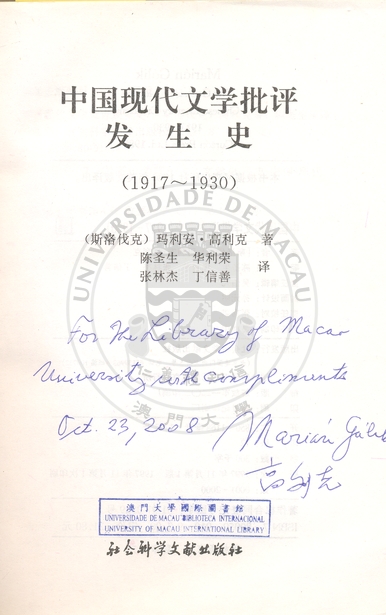 中国现代文学批评
发生史
(1917～1930)
(斯洛伐克)玛利安·高利克 著
陈圣生 华利荣
张林杰 丁信善 译
UNIVERSIDADE DE MACAU
仁義禮知信
澳門大學
For the Library of Macao
University with compliments
Oct. 23, 2008 Marián Gálik
高利克
澳門大學國際圖書館
UNIVERSIDADE DE MACAU BIBLIOTECA INTERNACIONAL
UNIVERSITY OF MACAU INTERNATIONAL LIBRARY
社会科学文献出版社